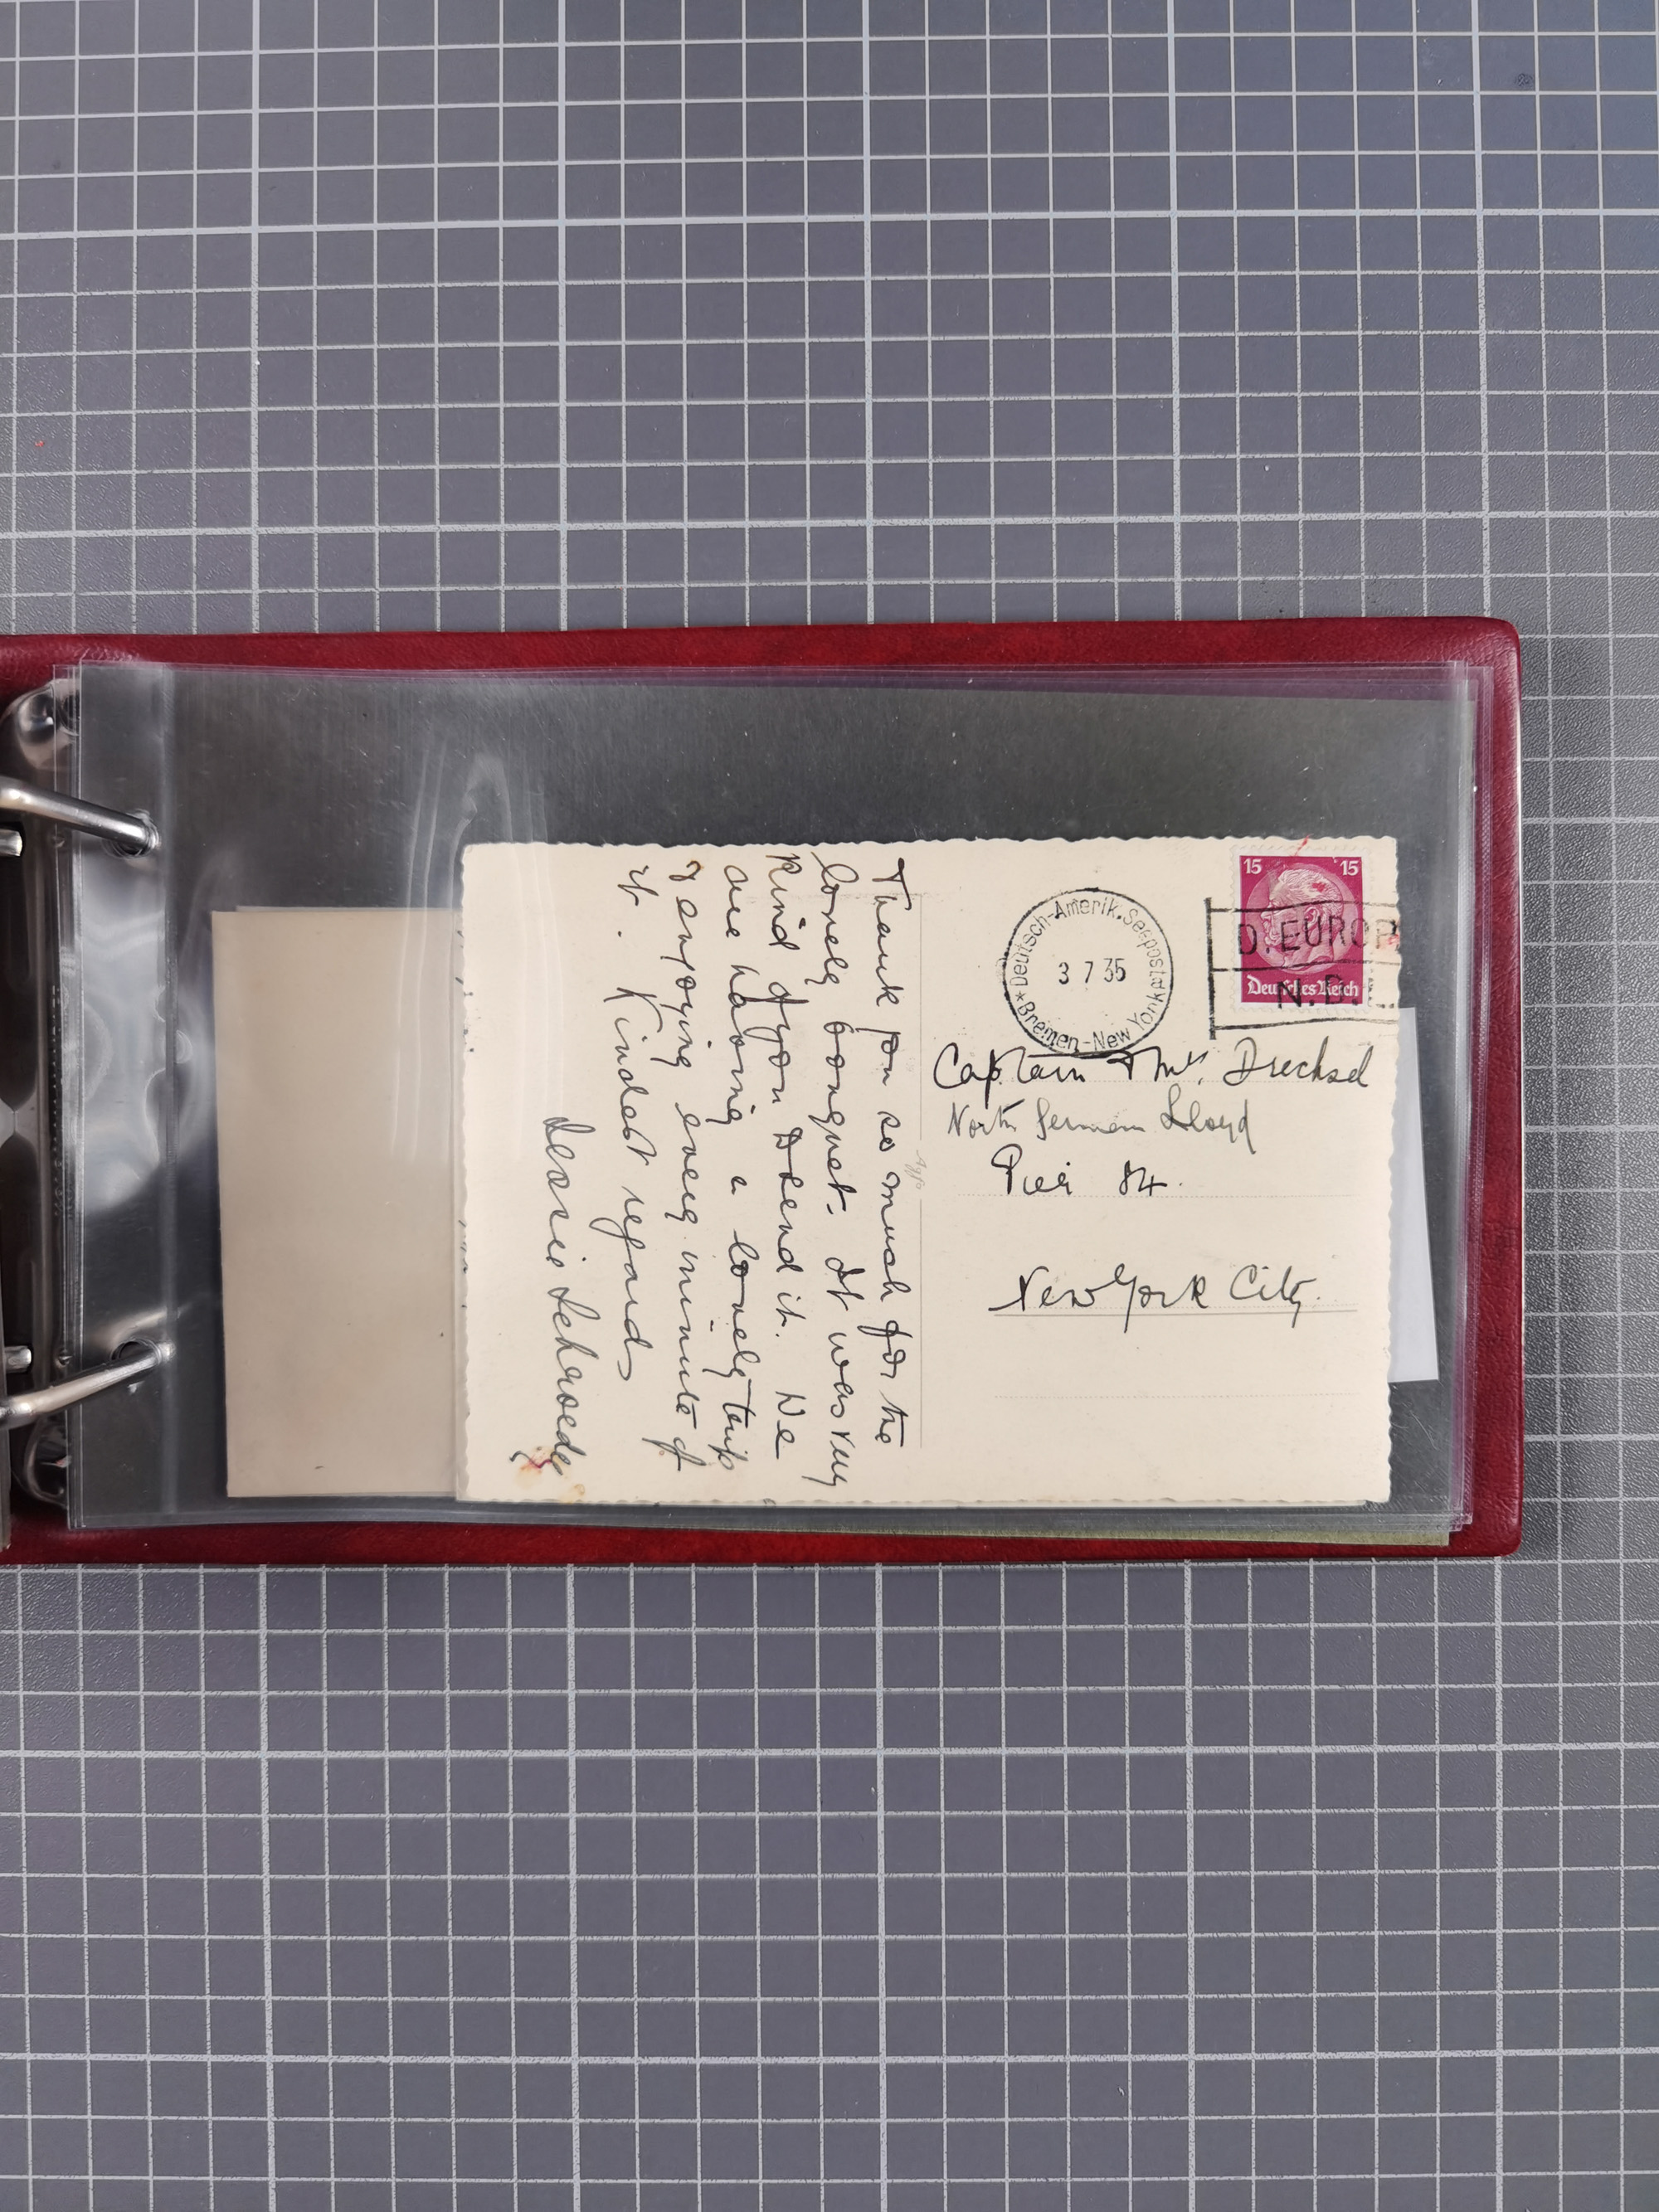 15 15
D. EUROP
N.D.L
Deutsches Reich
* Deutsch-Amerik. Seepost * Bremen-New York
3 7 35
Captain & Mrs. Drechsel
North German Lloyd
Pier 84.
New York City.
Thank you so much for the
lovely bouquet. It was very
kind of you to send it. We
are having a lovely trip
& enjoying every minute of
it. Kindest regards
Schroeder